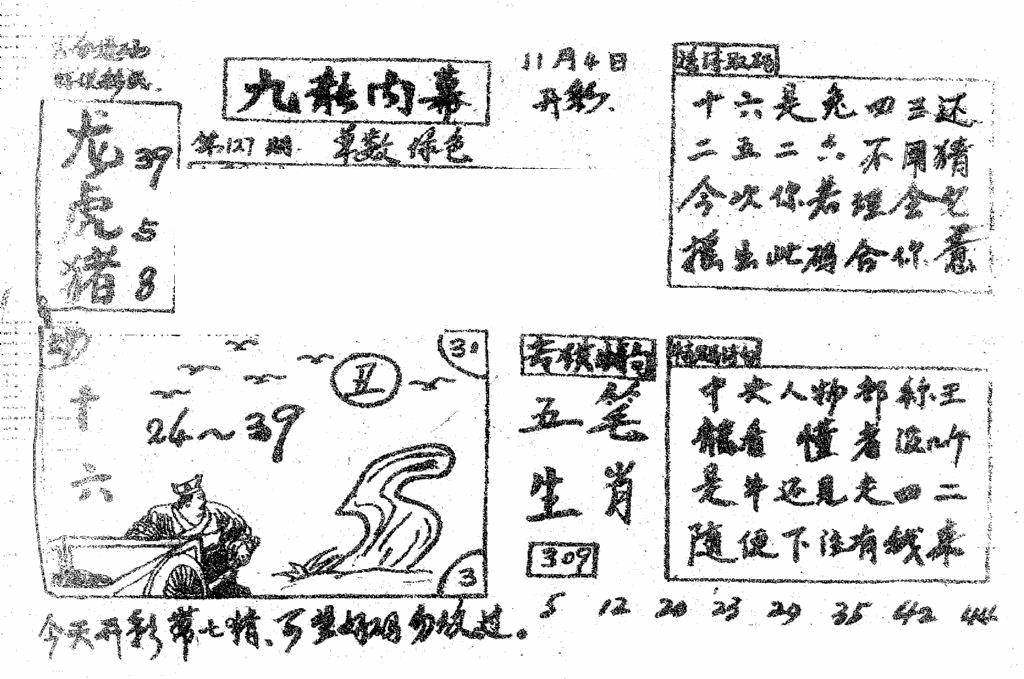 九龙内幕
第127期 单数 绿色
11月4日
开彩.
龙 39
虎 5
猪 8
十六是兔四三还
二五二六不用猪
今次你若理会它
摇出此码合你意
十六
丑
26～39
30
3
五笔
生肖
309
特码诗句
中央人物都称王
能看懂者没几个
是牛还是走四二
随便下注有钱来
今天开彩带七精、可望好码勿放过。
5 12 20 23 29 35 42 44